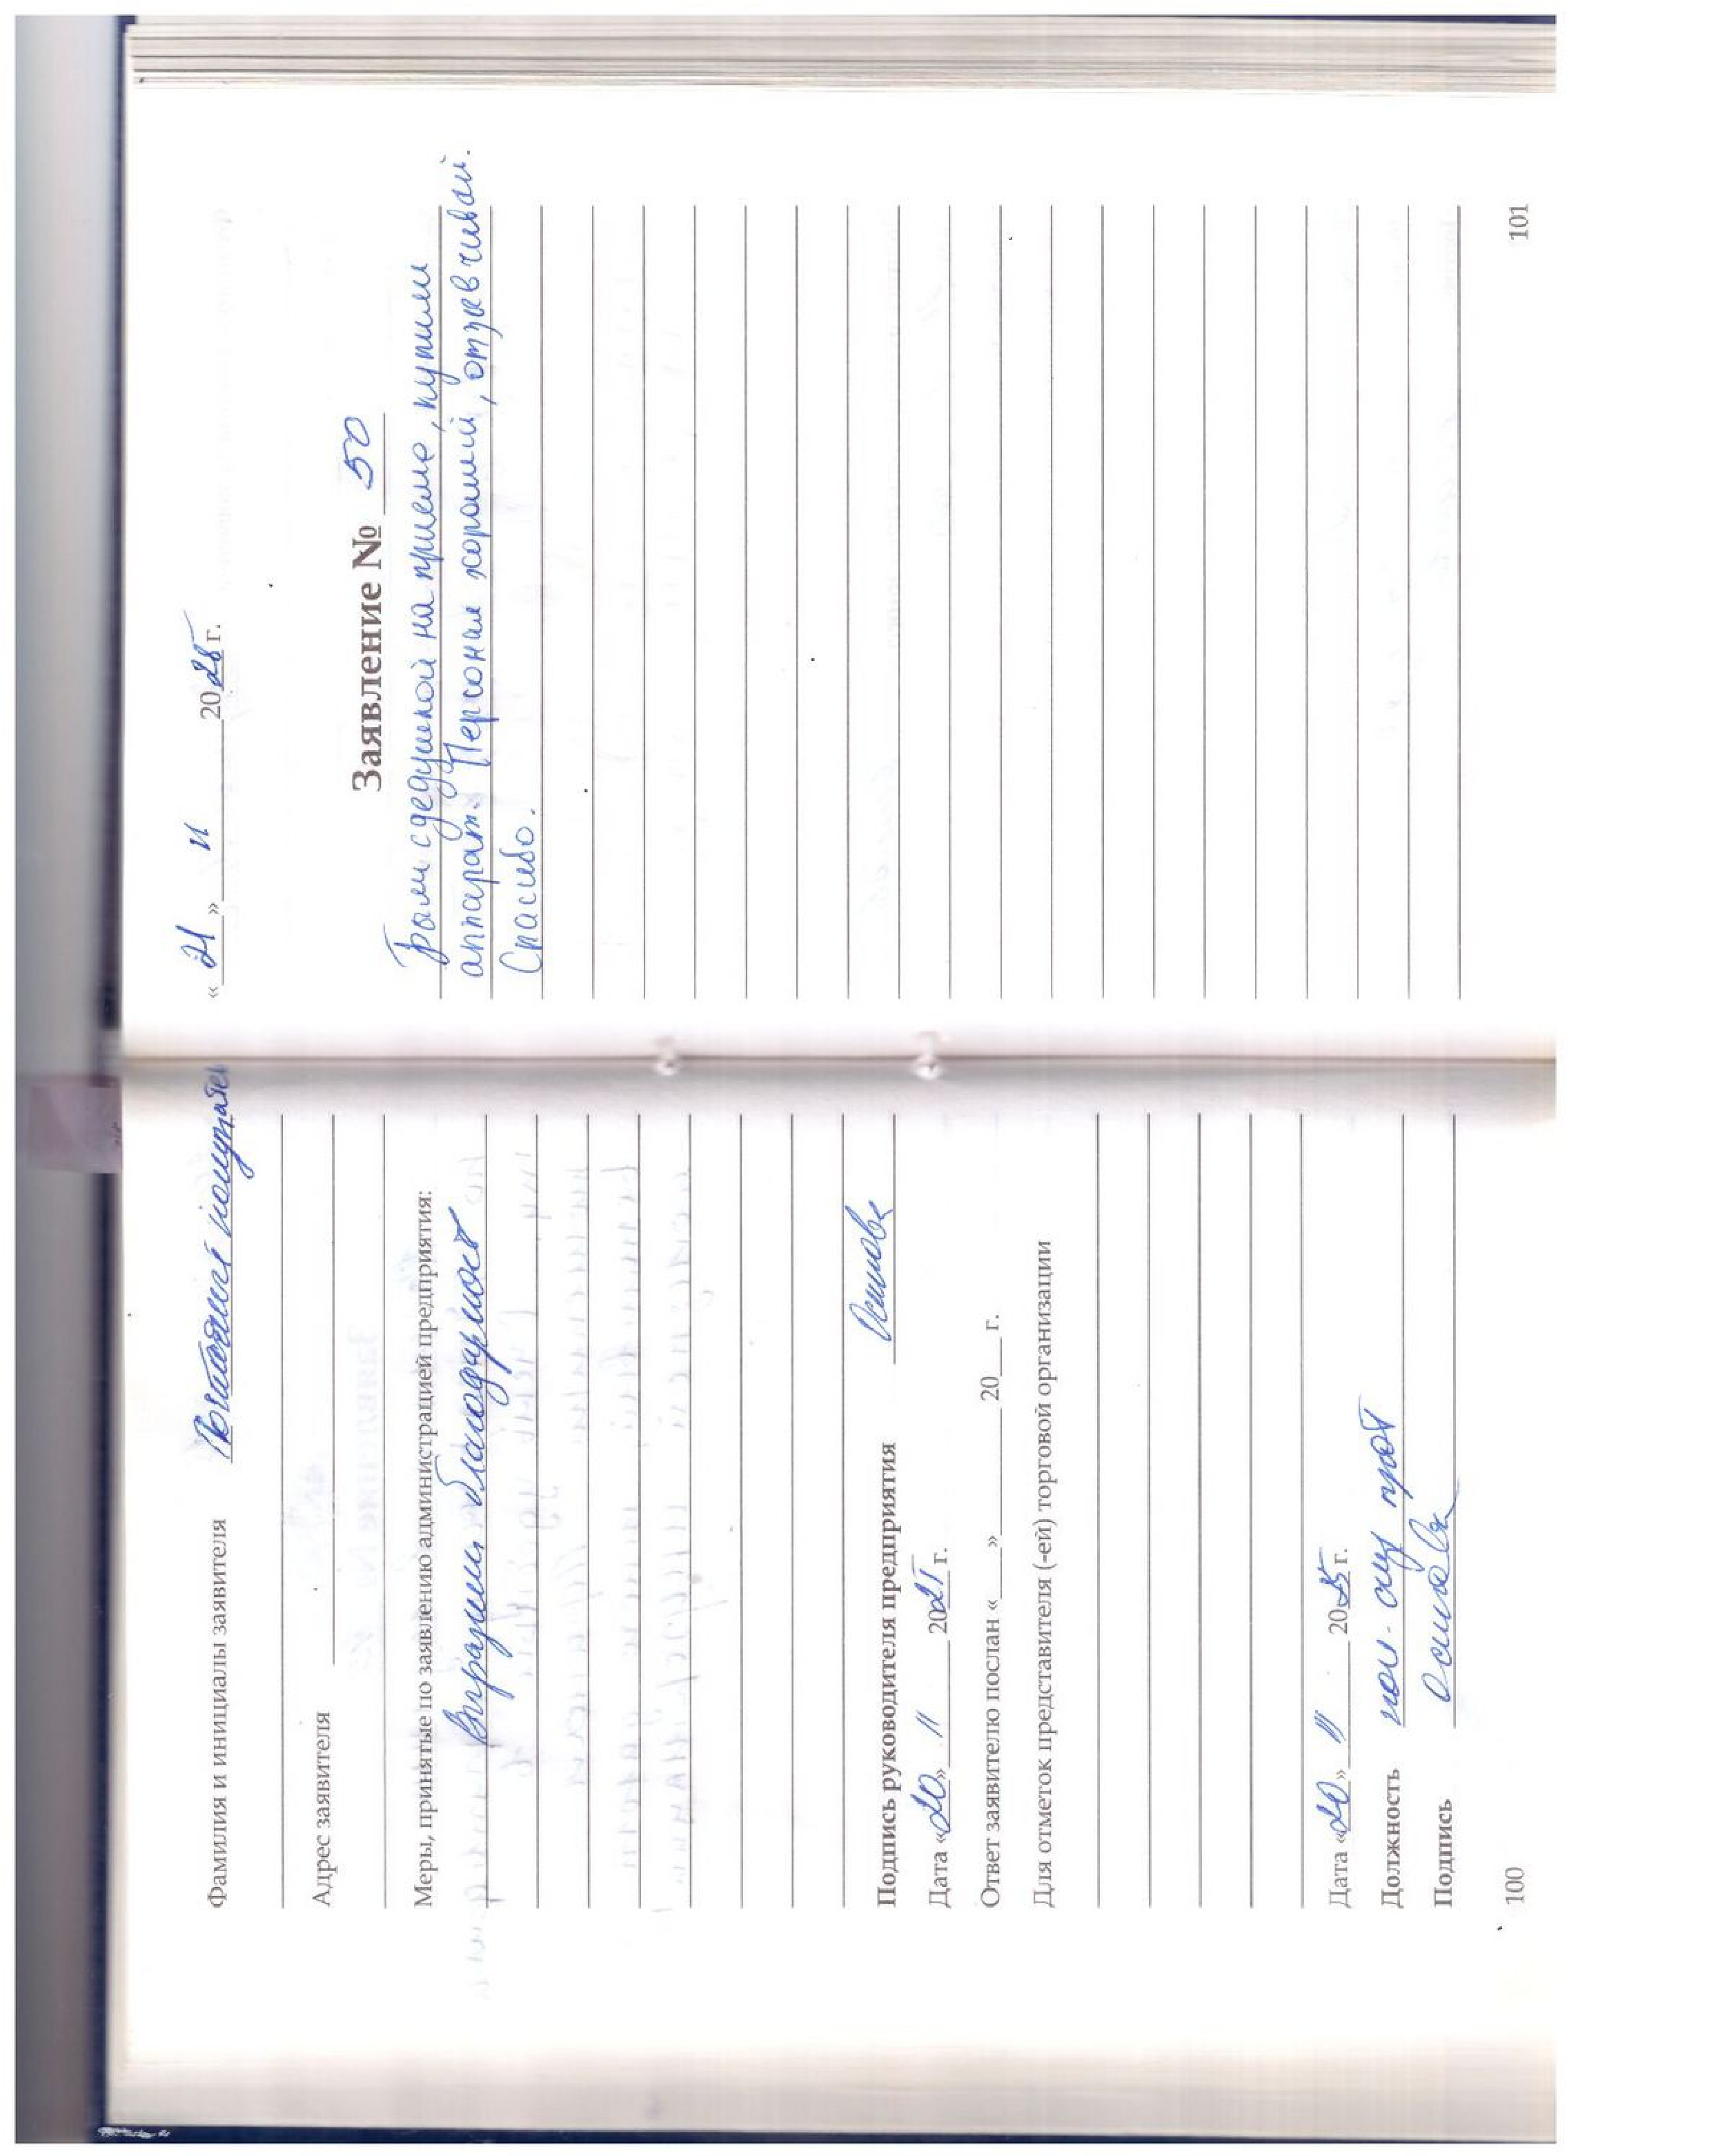 Фамилия и инициалы заявителя
Адрес заявителя
Меры, принятые по заявлению администрацией предприятия:
благодарность
Подпись руководителя предприятия
Дата «20» 11 2025 г.
Ответ заявителю послан «      »            20    г.
Для отметок представителя (-ей) торговой организации
Дата «20» 11 2025 г.
Должность
Подпись Осипова
100
«21» 11 2025 г.
Заявление № 50
Были с дедушкой на приеме, купили
аппарат. Персонал хороший, отзывчивый.
Спасибо.
101